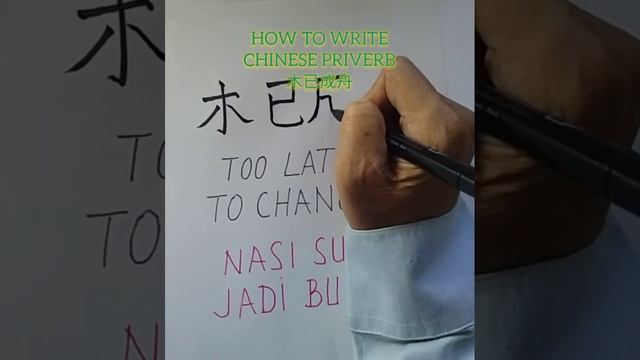 HOW TO WRITE
CHINESE PRIVERB
木已成舟
木已
TOO LAT
TO CHANG
NASI SU
JADI BU